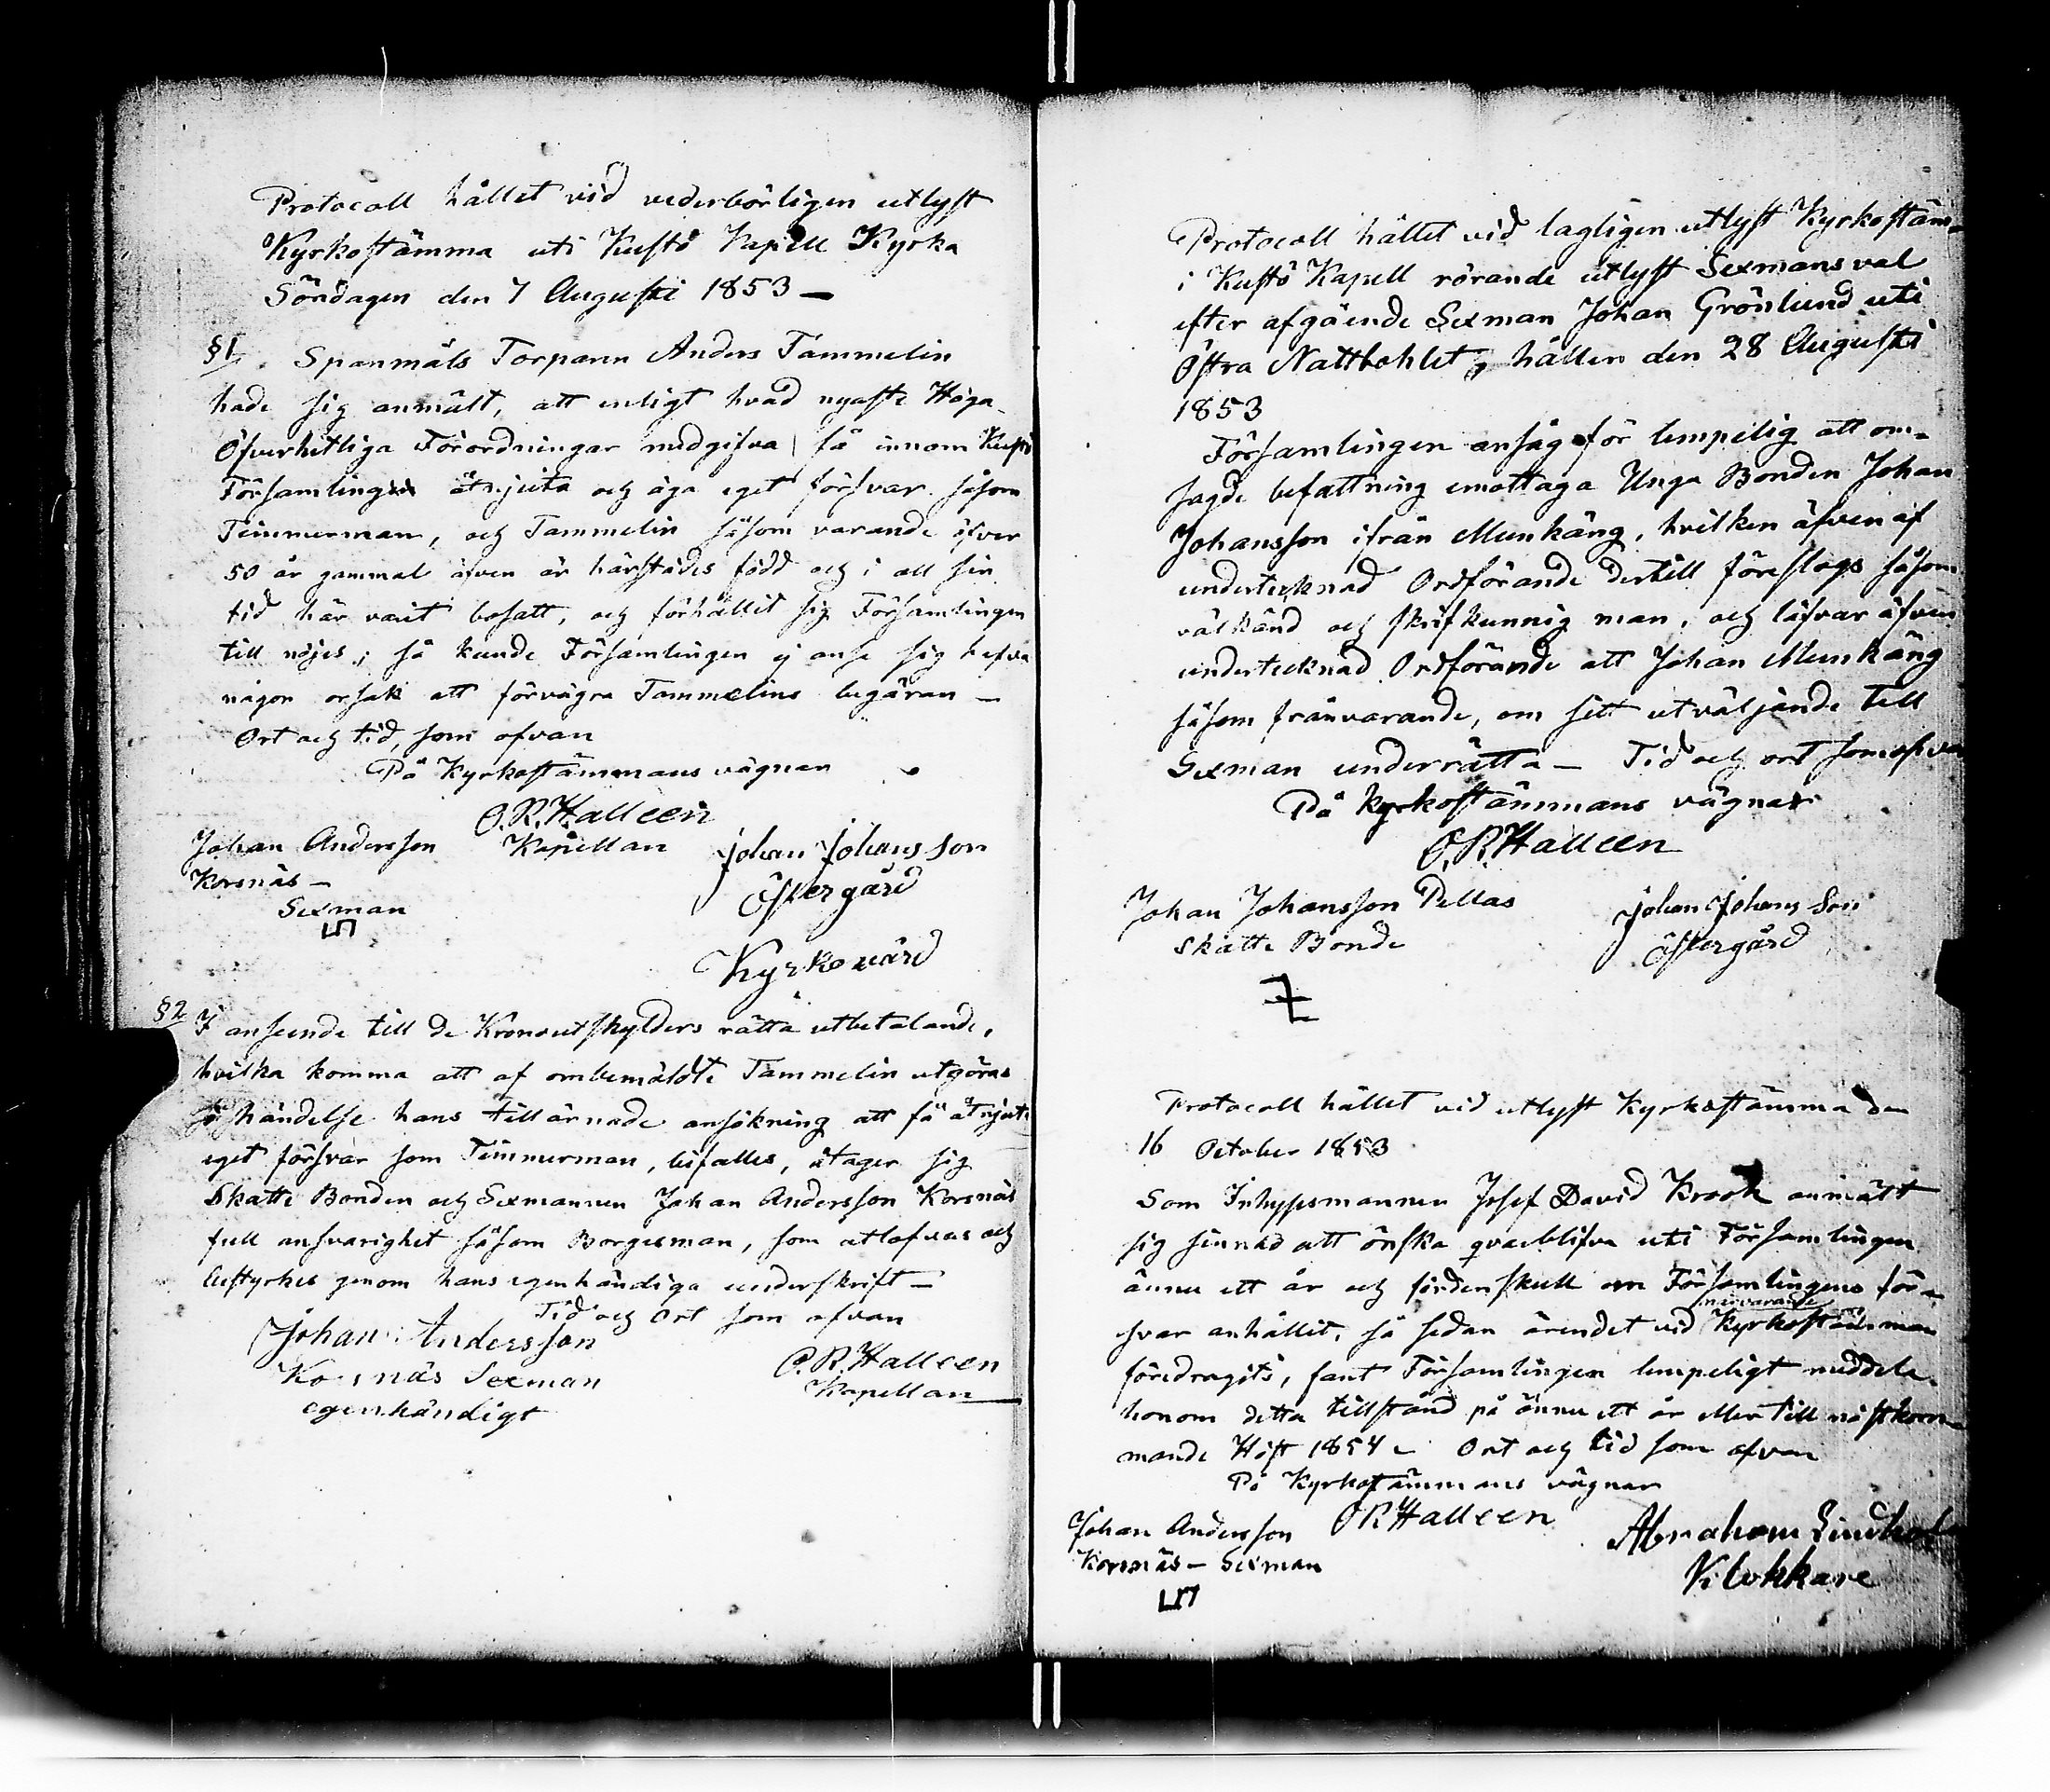 Protocoll hållet vid vederbörligen utlyst
Kyrkostämma uti Kustö Kapell Kyrka
Söndagen den 7 Augusti 1853 —
§1. Spanmåls Torparn Anders Tammelin
hade sig anmält, att enligt hvad nyaste Höga
Öfverhetliga Förordningar medgifva få innom Kustö
Församling åtnjuta och äga eget försvar såsom
Timmerman, och Tammelin såsom varande öfver
50 år gammal äfven är härstädes född och i all sin
tid här varit bosatt, och förhållit sig Församlingen
till nöjes; så kunde Församlingen ej anse sig hafva
någon orsak att förvägra Tammelins begäran —
Ort och tid, som ofvan
På Kyrkostämmans vägnar
O.R.Halleen
Kapellan
Johan Andersson
Korsnäs —
Sexman
Johan Johansson
Östergård
Kyrkovärd
§2 I anseende till de Kronoutskylders rätta utbetalande,
hvilka komma att af ombemäldte Tammelin utgöras
i händelse hans tillärnade ansökning att få åtnjuta
eget försvar som Timmerman, bifalles, åtager sig
Skatte Bonden och Sexmannen Johan Andersson Korsnäs
full ansvarighet såsom Borgesman, som utlofvas och
bestyrkes genom hans egenhändiga underskrift —
Tid och Ort som ofvan
Johan Andersson
Korsnäs Sexman
egenhändigt
O.R.Halleen
Kapellan
Protocoll hållet vid lagligen utlyst Kyrkostäm-
i Kustö Kapell rörande utlyst Sexmans val
efter afgående Sexman Johan Grönlund uti
Östra Nattbohlet, hållen den 28 Augusti
1853
Församlingen ansåg för lempelig att om-
sagde befattning emottaga Unga Bonden Johan
Johansson ifrån Munkäng, hvilken äfven af
undertecknad Ordförande dertill föreslogs såsom
välkänd och skrifkunnig man, och låfvar äfven
undertecknad Ordförande att Johan Munkäng
såsom frånvarande, om sitt utväljande till
Sexman underrätta — Tid och ort som ofvan
På Kyrkostämmans vägnar
O.R.Halleen
Johan Johansson Pellas
Skatte Bonde
Johan Johansson
Östergård
Protocoll hållet vid utlyst Kyrkostämma den
16 October 1853
Som Inhysesmannen Josef David Krook anmält
sig sinnad att önska qvarblifva uti Församlingen
ännu ett år och fördenskull om Församlingens för-
närvarande
svar anhållit, så sedan ärendet vid Kyrkostämman
föredragits, fant Församlingen lempeligt meddela
honom detta tillstånd på ännu ett år eller till nästkom-
mande Höst 1854 — Ort och tid som ofvan
På Kyrkostämmans vägnar
O R Halleen
Johan Andersson
Korsnäs — Sexman
Abraham Lindhol
Klokkare